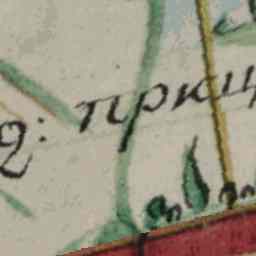 2: пркц